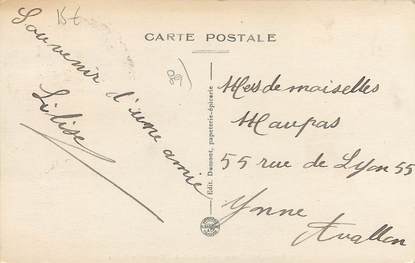 CARTE POSTALE
Souvenir d'une amie
Lilise
Mesdemoiselles
Maupas
55 rue de Lyon 55
Yonne
Avallon
Edit. Daumont, papeterie-épicerie